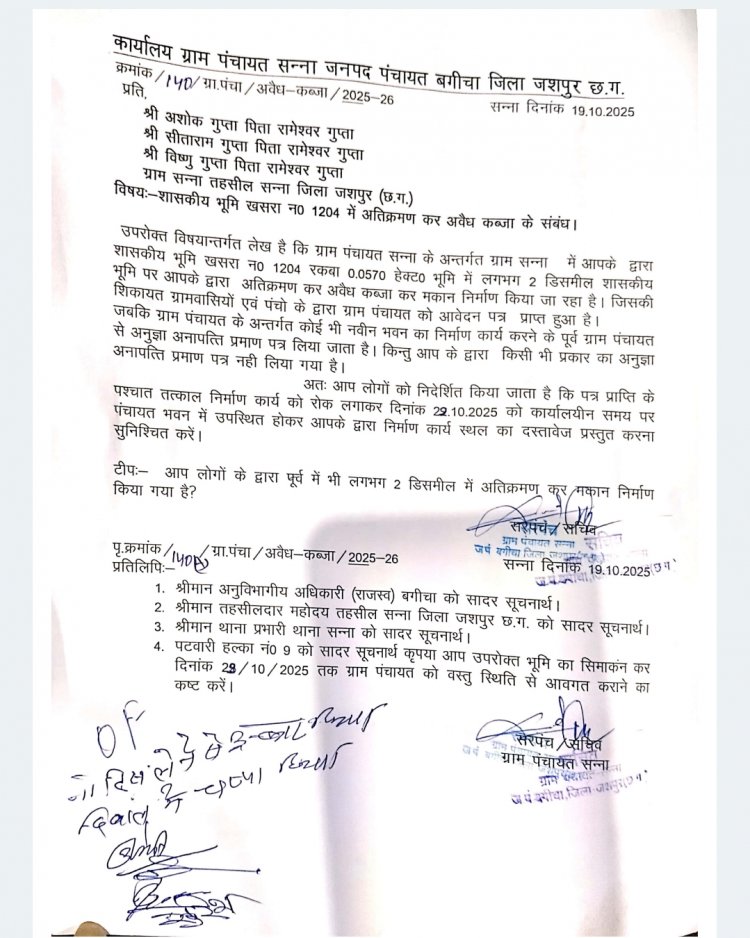 कार्यालय ग्राम पंचायत सन्ना जनपद पंचायत बगीचा जिला जशपुर छ.ग.
क्रमांक/140/ग्रा.पंचा/अवैध–कब्जा/2025–26
सन्ना दिनांक 19.10.2025
प्रति,
श्री अशोक गुप्ता पिता रामेश्वर गुप्ता
श्री सीताराम गुप्ता पिता रामेश्वर गुप्ता
श्री विष्णु गुप्ता पिता रामेश्वर गुप्ता
ग्राम सन्ना तहसील सन्ना जिला जशपुर (छ.ग.)
विषयः–शासकीय भूमि खसरा न0 1204 में अतिक्रमण कर अवैध कब्जा के संबंध।
उपरोक्त विषयान्तर्गत लेख है कि ग्राम पंचायत सन्ना के अन्तर्गत ग्राम सन्ना में आपके द्वारा
शासकीय भूमि खसरा न0 1204 रकबा 0.0570 हेक्ट0 भूमि में लगभग 2 डिसमील शासकीय
भूमि पर आपके द्वारा अतिक्रमण कर अवैध कब्जा कर मकान निर्माण किया जा रहा है। जिसकी
शिकायत ग्रामवासियों एवं पंचो के द्वारा ग्राम पंचायत को आवेदन पत्र प्राप्त हुआ है।
जबकि ग्राम पंचायत के अन्तर्गत कोई भी नवीन भवन का निर्माण कार्य करने के पूर्व ग्राम पंचायत
से अनुज्ञा अनापत्ति प्रमाण पत्र लिया जाता है। किन्तु आप के द्वारा किसी भी प्रकार का अनुज्ञा
अनापत्ति प्रमाण पत्र नही लिया गया है।
अतः आप लोगों को निदेर्शित किया जाता है कि पत्र प्राप्ति के
पश्चात तत्काल निर्माण कार्य को रोक लगाकर दिनांक 22.10.2025 को कार्यालयीन समय पर
पंचायत भवन में उपस्थित होकर आपके द्वारा निर्माण कार्य स्थल का दस्तावेज प्रस्तुत करना
सुनिश्चित करें।
टीपः– आप लोगों के द्वारा पूर्व में भी लगभग 2 डिसमील में अतिक्रमण कर मकान निर्माण
किया गया है?
सरपंच/सचिव
ग्राम पंचायत सन्ना
सचिव
पृ.क्रमांक/140/ग्रा.पंचा/अवैध–कब्जा/2025–26
सन्ना दिनांक 19.10.2025
प्रतिलिपिः–
1. श्रीमान अनुविभागीय अधिकारी (राजस्व) बगीचा को सादर सूचनार्थ।
2. श्रीमान तहसीलदार महोदय तहसील सन्ना जिला जशपुर छ.ग. को सादर सूचनार्थ।
3. श्रीमान थाना प्रभारी थाना सन्ना को सादर सूचनार्थ।
4. पटवारी हल्का नं0 9 को सादर सूचनार्थ कृपया आप उपरोक्त भूमि का सिमाकंन कर
दिनांक 28/10/2025 तक ग्राम पंचायत को वस्तु स्थिति से आवगत कराने का
कष्ट करें।
सरपंच/सचिव
ग्राम पंचायत सन्ना
ज.पं.बगीचा,जिला-जशपुर(छ.ग.)
OF